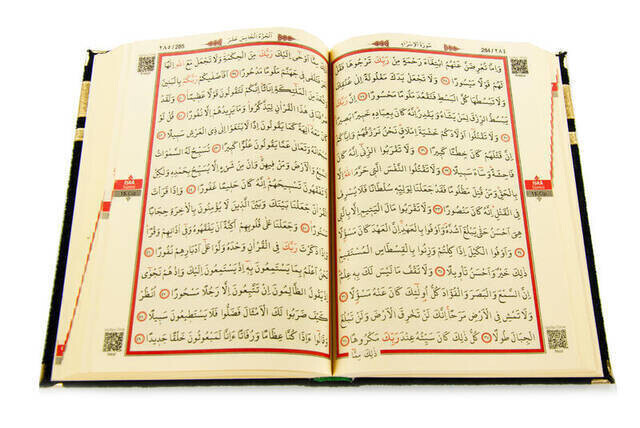 سُورَةُ الْاِسْرَاءِ
284/٢٨٤
وَاِمَّا تُعْرِضَنَّ عَنْهُمُ ابْتِغَاءَ رَحْمَةٍ مِنْ رَبِّكَ تَرْجُوهَا فَقُلْ
لَهُمْ قَوْلًا مَيْسُورًا ﴿٢٨﴾ وَلَا تَجْعَلْ يَدَكَ مَغْلُولَةً اِلٰى عُنُقِكَ
وَلَا تَبْسُطْهَا كُلَّ الْبَسْطِ فَتَقْعُدَ مَلُومًا مَحْسُورًا ﴿٢٩﴾ اِنَّ رَبَّكَ
يَبْسُطُ الرِّزْقَ لِمَنْ يَشَاءُ وَيَقْدِرُ اِنَّهُ كَانَ بِعِبَادِهِ خَبِيرًا بَصِيرًا
﴿٣٠﴾ وَلَا تَقْتُلُوا اَوْلَادَكُمْ خَشْيَةَ اِمْلَاقٍ نَحْنُ نَرْزُقُهُمْ وَاِيَّاكُمْ
اِنَّ قَتْلَهُمْ كَانَ خِطْـًٔا كَبِيرًا ﴿٣١﴾ وَلَا تَقْرَبُوا الزِّنٰى اِنَّهُ كَانَ
فَاحِشَةً وَسَاءَ سَبِيلًا ﴿٣٢﴾ وَلَا تَقْتُلُوا النَّفْسَ الَّتِي حَرَّمَ اللّٰهُ اِلَّا
بِالْحَقِّ وَمَنْ قُتِلَ مَظْلُومًا فَقَدْ جَعَلْنَا لِوَلِيِّهِ سُلْطَانًا فَلَا يُسْرِفْ
فِي الْقَتْلِ اِنَّهُ كَانَ مَنْصُورًا ﴿٣٣﴾ وَلَا تَقْرَبُوا مَالَ الْيَتِيمِ اِلَّا بِالَّتِي
هِيَ اَحْسَنُ حَتّٰى يَبْلُغَ اَشُدَّهُ وَاَوْفُوا بِالْعَهْدِ اِنَّ الْعَهْدَ كَانَ مَسْؤُلًا
﴿٣٤﴾ وَاَوْفُوا الْكَيْلَ اِذَا كِلْتُمْ وَزِنُوا بِالْقِسْطَاسِ الْمُسْتَقِيمِ
ذٰلِكَ خَيْرٌ وَاَحْسَنُ تَأْوِيلًا ﴿٣٥﴾ وَلَا تَقْفُ مَا لَيْسَ لَكَ بِهِ عِلْمٌ
اِنَّ السَّمْعَ وَالْبَصَرَ وَالْفُؤَادَ كُلُّ اُولٰئِكَ كَانَ عَنْهُ مَسْؤُلًا ﴿٣٦﴾
وَلَا تَمْشِ فِي الْاَرْضِ مَرَحًا اِنَّكَ لَنْ تَخْرِقَ الْاَرْضَ وَلَنْ تَبْلُغَ
الْجِبَالَ طُولًا ﴿٣٧﴾ كُلُّ ذٰلِكَ كَانَ سَيِّئُهُ عِنْدَ رَبِّكَ مَكْرُوهًا ﴿٣٨﴾
ذٰلِكَ مِمَّا
اَلْجُزْءُ الْخَامِسَ عَشَرَ
285/٢٨٥
مِمَّا اَوْحٰى اِلَيْكَ رَبُّكَ مِنَ الْحِكْمَةِ وَلَا تَجْعَلْ مَعَ اللّٰهِ اِلٰهًا
فَتُلْقٰى فِي جَهَنَّمَ مَلُومًا مَدْحُورًا ﴿٣٩﴾ اَفَاَصْفٰيكُمْ رَبُّكُمْ بِالْبَنِينَ
مِنَ الْمَلٰئِكَةِ اِنَاثًا اِنَّكُمْ لَتَقُولُونَ قَوْلًا عَظِيمًا ﴿٤٠﴾ وَلَقَدْ
فِي هٰذَا الْقُرْاٰنِ لِيَذَّكَّرُوا وَمَا يَزِيدُهُمْ اِلَّا نُفُورًا ﴿٤١﴾ قُلْ لَوْ
مَعَهُ اٰلِهَةٌ كَمَا يَقُولُونَ اِذًا لَابْتَغَوْا اِلٰى ذِي الْعَرْشِ سَبِيلًا
وَتَعَالٰى عَمَّا يَقُولُونَ عُلُوًّا كَبِيرًا ﴿٤٣﴾ تُسَبِّحُ لَهُ السَّمٰوَاتُ
وَالْاَرْضُ وَمَنْ فِيهِنَّ وَاِنْ مِنْ شَيْءٍ اِلَّا يُسَبِّحُ بِحَمْدِهِ وَلٰكِنْ
تَفْقَهُونَ تَسْبِيحَهُمْ اِنَّهُ كَانَ حَلِيمًا غَفُورًا ﴿٤٤﴾ وَاِذَا قَرَأْتَ
الْقُرْاٰنَ جَعَلْنَا بَيْنَكَ وَبَيْنَ الَّذِينَ لَا يُؤْمِنُونَ بِالْاٰخِرَةِ حِجَابًا
﴿٤٥﴾ وَجَعَلْنَا عَلٰى قُلُوبِهِمْ اَكِنَّةً اَنْ يَفْقَهُوهُ وَفِي اٰذَانِهِمْ وَقْرًا
وَاِذَا ذَكَرْتَ رَبَّكَ فِي الْقُرْاٰنِ وَحْدَهُ وَلَّوْا عَلٰى اَدْبَارِهِمْ نُفُورًا ﴿٤٦﴾
نَحْنُ اَعْلَمُ بِمَا يَسْتَمِعُونَ بِهِ اِذْ يَسْتَمِعُونَ اِلَيْكَ وَاِذْ هُمْ نَجْوٰى
اِذْ يَقُولُ الظَّالِمُونَ اِنْ تَتَّبِعُونَ اِلَّا رَجُلًا مَسْحُورًا ﴿٤٧﴾ اُنْظُرْ
كَيْفَ ضَرَبُوا لَكَ الْاَمْثَالَ فَضَلُّوا فَلَا يَسْتَطِيعُونَ سَبِيلًا ﴿٤٨﴾
وَقَالُوا ءَاِذَا كُنَّا عِظَامًا وَرُفَاتًا ءَاِنَّا لَمَبْعُوثُونَ خَلْقًا جَدِيدًا ﴿٤٩﴾